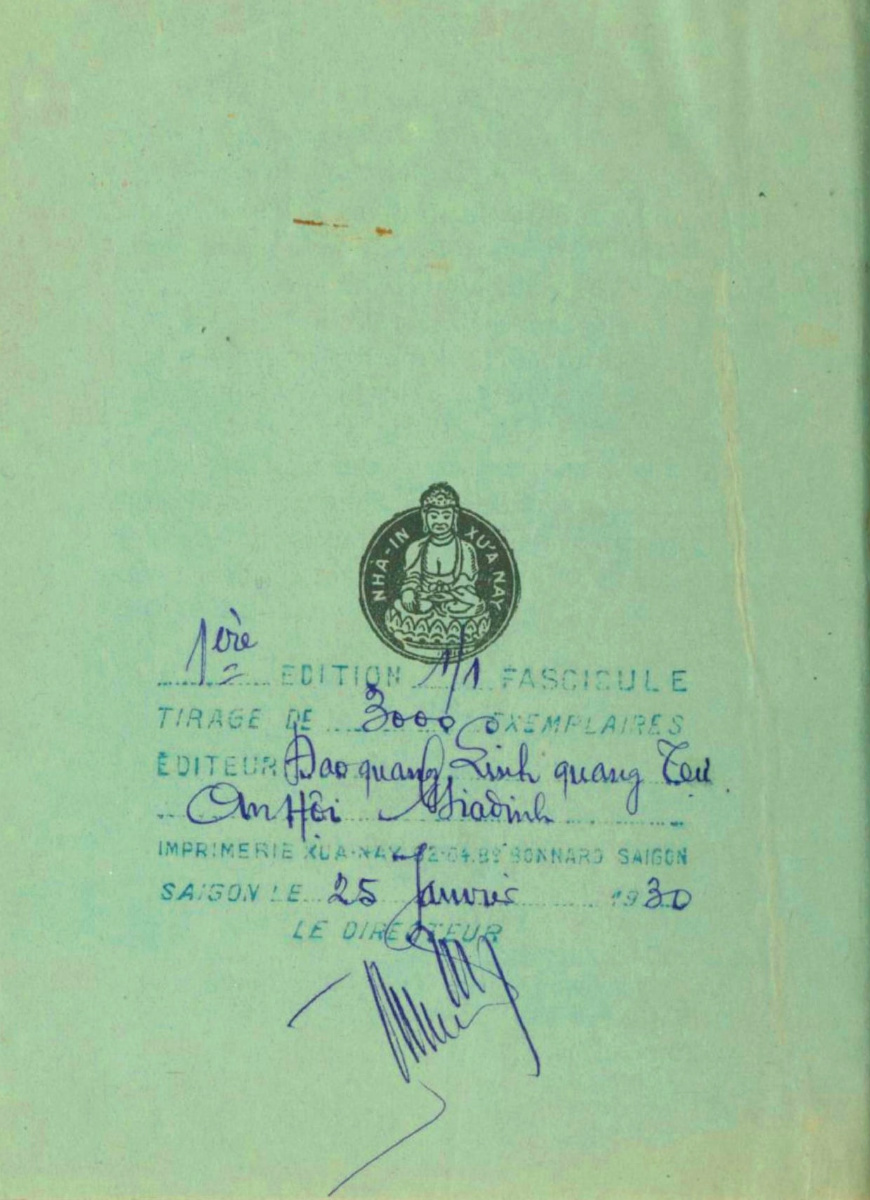 NHA-IN XU'A NAY
1ère EDITION 1/1 FASCICULE
TIRAGE DE 3000 EXEMPLAIRES
ÉDITEUR Dao quang, Linh quang Tự
An Hội Giadinh
IMPRIMERIE XUA-NAY 62-64.Bd BONNARD SAIGON
SAIGON LE 25 Janvier 1930
LE DIRECTEUR